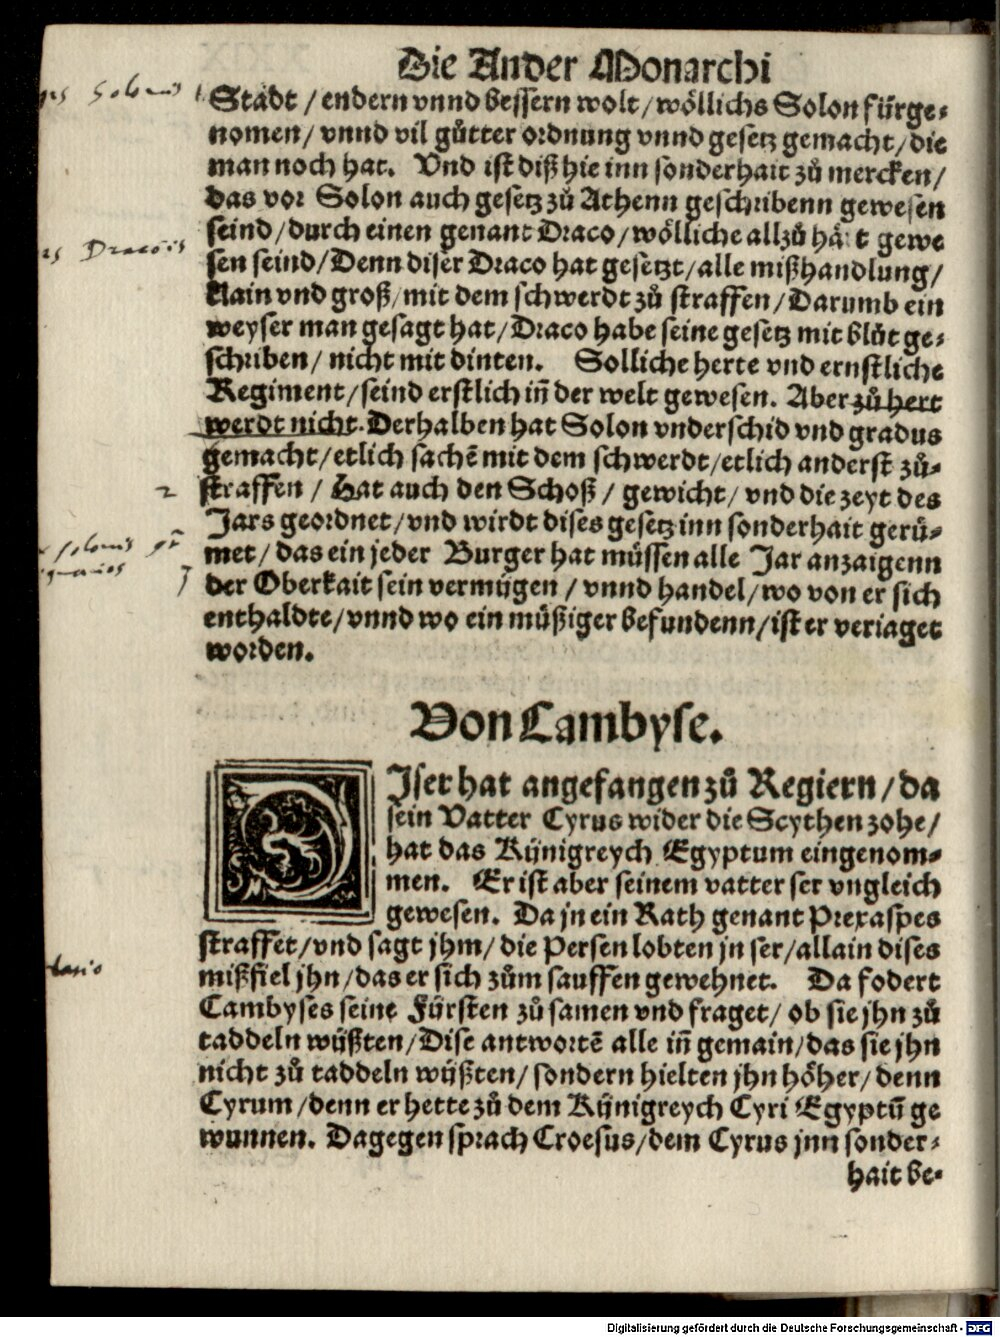 Die Ander Monarchi
Stadt / endern vnnd bessern wolt / wöllichs Solon fürge-
nomen / vnnd vil gůtter ordnung vnnd gesetz gemacht / die
man noch hat. Vnd ist diß hie inn sonderhait zů mercken /
das vor Solon auch gesetz zů Athenn geschribenn gewesen
seind / durch einen genant Draco / wölliche allzů hart gewe
sen seind / Denn diser Draco hat gesetzt / alle mißhandlung /
klain vnd groß / mit dem schwerdt zů straffen / Darumb ein
weyser man gesagt hat / Draco habe seine gesetz mit blůt ge-
schriben / nicht mit dinten. Solliche herte vnd ernstliche
Regiment / seind erstlich iñ der welt gewesen. Aber zů hert
werdt nicht. Derhalben hat Solon vnderschid vnd gradus
gemacht / etlich sachē mit dem schwerdt / etlich anderst zů-
2 straffen / Hat auch den Schoß / gewicht / vnd die zeyt des
Jars geordnet / vnd wirdt dises gesetz inn sonderhait gerü-
met / das ein jeder Burger hat müssen alle Jar anzaigenn
der Oberkait sein vermügen / vnnd handel / wo von er sich
enthaldte / vnnd wo ein müßiger befundenn / ist er veriaget
worden.
Von Cambyse.
DIser hat angefangen zů Regiern / da
sein Vatter Cyrus wider die Scythen zohe /
hat das Künigreych Egyptum eingenom-
men. Er ist aber seinem vatter ser vngleich
gewesen. Da jn ein Rath genant Prexaspes
straffet / vnd sagt jhm / die Persen lobten jn ser / allain dises
mißfiel jhn / das er sich zům sauffen gewehnet. Da fodert
Cambyses seine Fürsten zů samen vnd fraget / ob sie jhn zů
taddeln wüßten / Dise antwortē alle iñ gemain / das sie jhn
nicht zů taddeln wüßten / sondern hielten jhn höher / denn
Cyrum / denn er hette zů dem Künigreych Cyri Egyptū ge
wunnen. Dagegen sprach Croesus / dem Cyrus jnn sonder-
hait be-
Digitalisierung gefördert durch die Deutsche Forschungsgemeinschaft - DFG